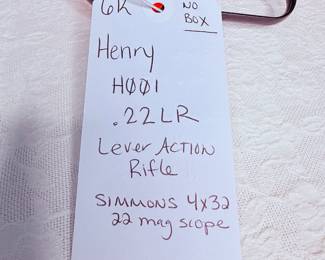 6K
NO
BOX
Henry
H001
.22LR
Lever Action
Rifle
SIMMONS 4x32
22 mag scope